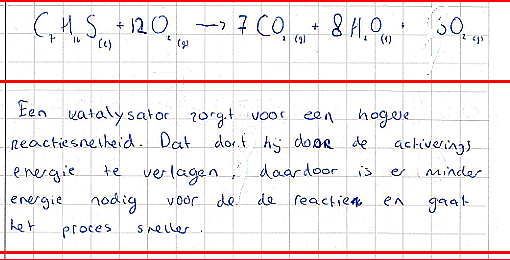 C₇H₁₆S(l) + 12O₂(g) → 7CO₂(g) + 8H₂O(l) + SO₂(g)
Een katalysator zorgt voor een hogere
reactiesnelheid. Dat doet hij door de activerings
energie te verlagen, daardoor is er minder
energie nodig voor de de reactie en gaat
het proces sneller.